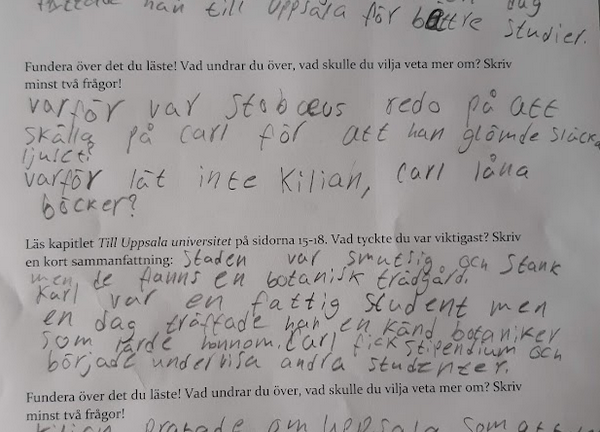 han till Uppsala för bättre studier.
Fundera över det du läste! Vad undrar du över, vad skulle du vilja veta mer om? Skriv
minst två frågor!
varför var Stobæus redo på att
skälla på carl för att han glömde släcka
ljuset?
varför lät inte Kilian, carl låna
böcker?
Läs kapitlet Till Uppsala universitet på sidorna 15-18. Vad tyckte du var viktigast? Skriv
en kort sammanfattning: staden var smutsig och stank
men de fanns en botanisk trädgård.
Karl var en fattig student men
en dag träffade han en känd botaniker
som lärde honnom. Carl fick stipendium och
började undervisa andra studenter.
Fundera över det du läste! Vad undrar du över, vad skulle du vilja veta mer om? Skriv
minst två frågor!
Kilian pratade om uppsala som att